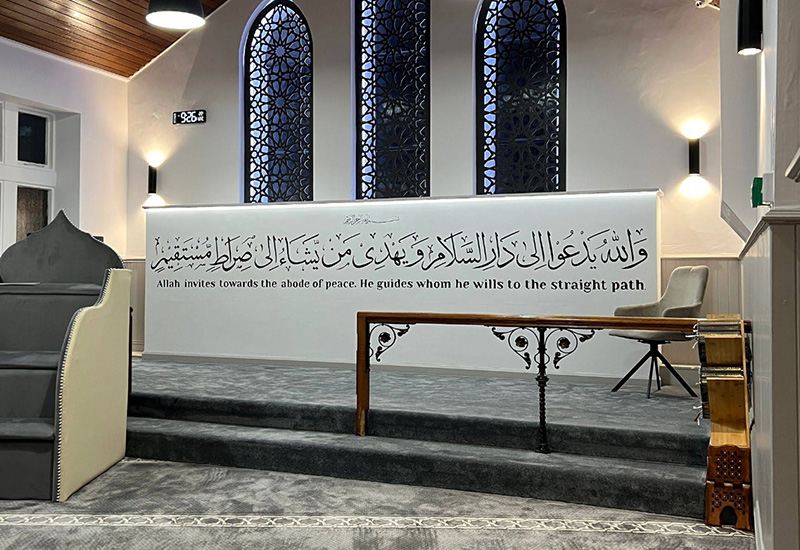 9:26
وَاللّٰهُ يَدْعُوْا اِلٰى دَارِ السَّلَامِ وَ يَهْدِىْ مَنْ يَّشَآءُ اِلٰى صِرَاطٍ مُّسْتَقِيْمٍ
Allah invites towards the abode of peace. He guides whom he wills to the straight path.